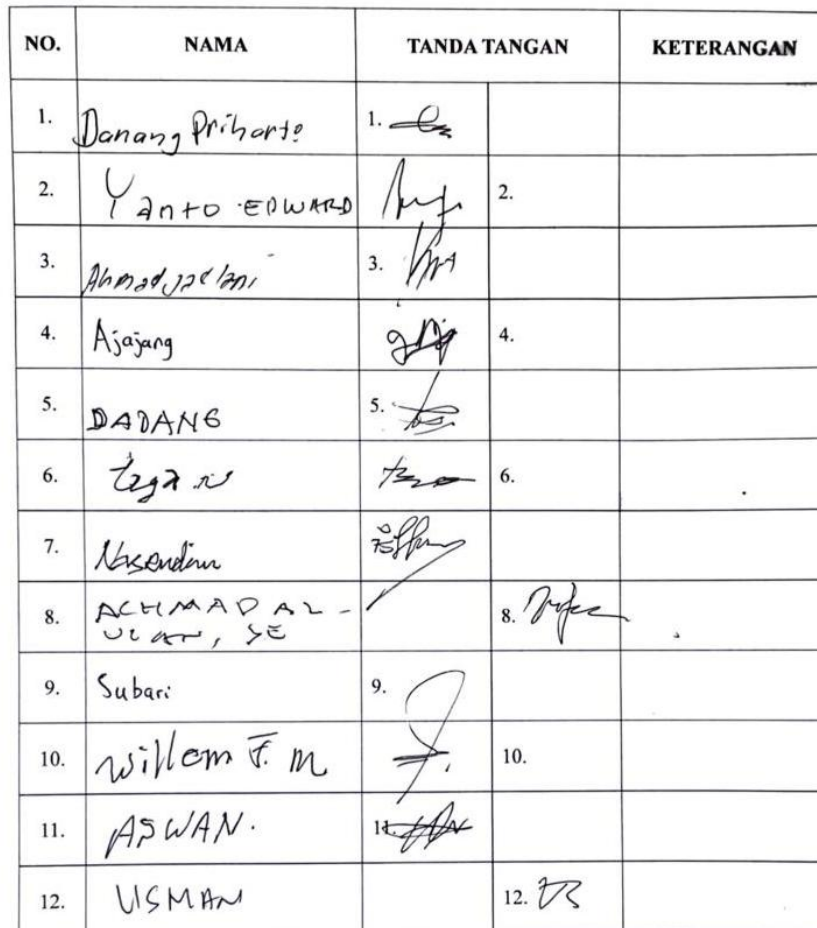 NO. NAMA TANDA TANGAN KETERANGAN
1. Danang Priharto 1.
2. Yanto EDWARD 2.
3. Ahmad Jaelani 3.
4. Ajajang 4.
5. DADANG 5.
6. 6.
7. Nasendin
8. ACHMAD AL - 8.
, SE
9. Subari 9.
10. Willem F. M 10.
11. ASWAN. 11.
12. USMAN 12.